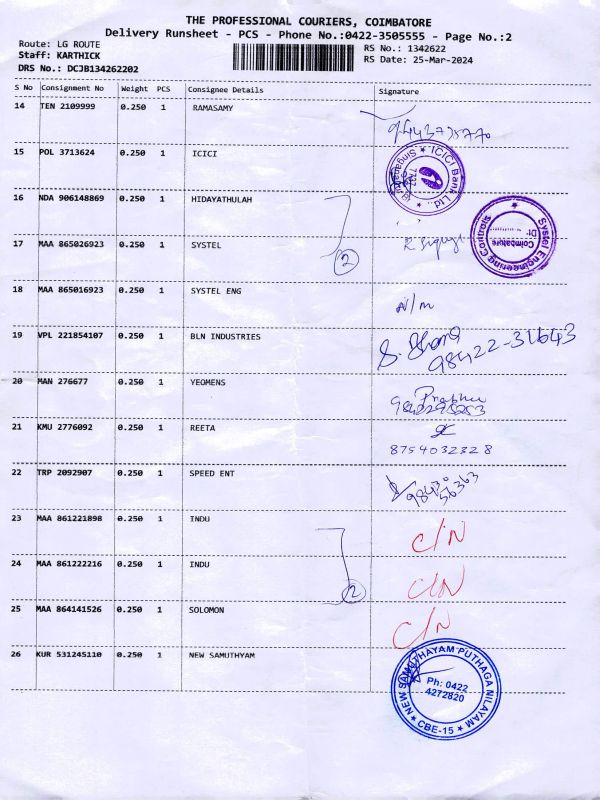 THE PROFESSIONAL COURIERS, COIMBATORE
Delivery Runsheet - PCS - Phone No.:0422-3505555 - Page No.:2
Route: LG ROUTE
RS No.: 1342622
Staff: KARTHICK
RS Date: 25-Mar-2024
DRS No.: DCJB134262202
S No Consignment No Weight PCS Consignee Details Signature
14 TEN 2109999 0.250 1 RAMASAMY
15 POL 3713624 0.250 1 ICICI
ICICI Bank Ltd.
Singanallur
16 NDA 906148869 0.250 1 HIDAYATHULAH
17 MAA 865026923 0.250 1 SYSTEL
2
Systel Engineering Controls
Coimbatore
18 MAA 865016923 0.250 1 SYSTEL ENG N/m
19 VPL 221854107 0.250 1 BLN INDUSTRIES
98422-31643
20 MAN 276677 0.250 1 YEOMENS Prabhu
21 KMU 2776092 0.250 1 REETA
8754032328
22 TRP 2092907 0.250 1 SPEED ENT
98430
56363
23 MAA 861221898 0.250 1 INDU C/N
24 MAA 861222216 0.250 1 INDU C/N
2
25 MAA 864141526 0.250 1 SOLOMON C/N
26 KUR 531245110 0.250 1 NEW SAMUTHYAM
NEW SAMUTHAYAM PUTHAGA NILAYAM
Ph: 0422
4272820
CBE-15